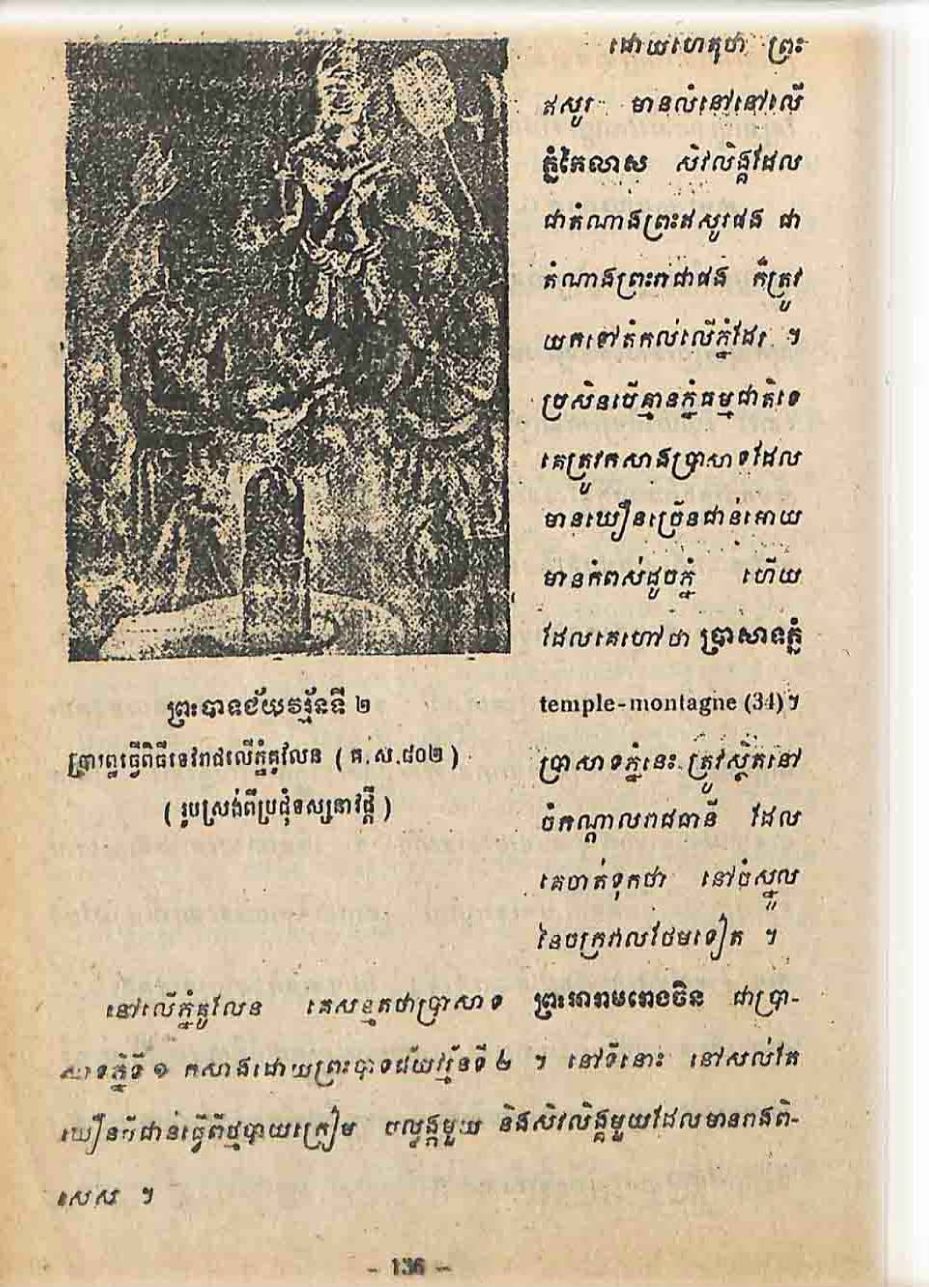 ដោយហេតុថា ព្រះ
ឥសូរ មានលំនៅនៅលើ
ភ្នំកៃលាស សិវលិង្គដែល
ជាតំណាងព្រះឥសូរផង ជា
តំណាងព្រះរាជាផង ក៏ត្រូវ
យកទៅតំកល់លើភ្នំដែរ ។
ប្រសិនបើគ្មានភ្នំធម្មជាតិទេ
គេត្រូវកសាងប្រាសាទដែល
មានឃឿនច្រើនជាន់អោយ
មានកំពស់ដូចភ្នំ ហើយ
ដែលគេហៅថា ប្រាសាទភ្នំ
temple-montagne (34)។
ប្រាសាទភ្នំនេះ ត្រូវស្ថិតនៅ
ចំកណ្តាលរាជធានី ដែល
គេចាត់ទុកថា នៅចំស្នូល
នៃចក្រវាលថែមទៀត ។
ព្រះបាទជ័យវរ្ម័នទី ២
ប្រារព្ធធ្វើពិធីទេវរាជលើភ្នំគូលែន ( គ.ស.៨០២ )
( រូបស្រង់ពីប្រជុំទស្សនាវដ្តី )
នៅលើភ្នំគូលែន គេសន្មតថាប្រាសាទ ព្រះអារាមរោងចិន ជាប្រា-
សាទភ្នំទី ១ កសាងដោយព្រះបាទជ័យវរ្ម័នទី ២ ។ នៅទីនោះ នៅសល់តែ
ឃឿនបីជាន់ធ្វើពីថ្មបាយក្រៀម បល្ល័ង្កមួយ និងសិវលិង្គមួយដែលមានរាងពិ-
សេស ។
- 136 -